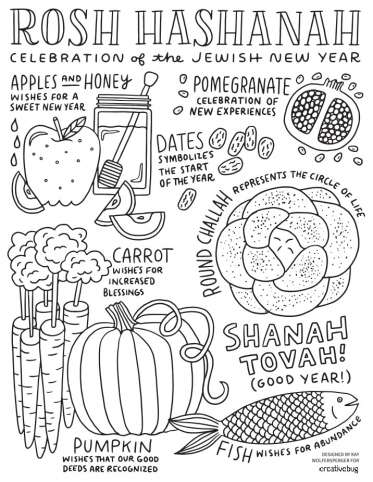 ROSH HASHANAH
CELEBRATION of the JEWISH NEW YEAR
APPLES AND HONEY
WISHES FOR A
SWEET NEW YEAR
POMEGRANATE
CELEBRATION OF
NEW EXPERIENCES
DATES
SYMBOLIZES
THE START
OF THE YEAR
ROUND CHALLAH REPRESENTS THE CIRCLE OF LIFE
CARROT
WISHES FOR
INCREASED
BLESSINGS
SHANAH
TOVAH!
(GOOD YEAR!)
PUMPKIN
WISHES THAT OUR GOOD
DEEDS ARE RECOGNIZED
FISH WISHES FOR ABUNDANCE
DESIGNED BY RAY
FOR
creativebug